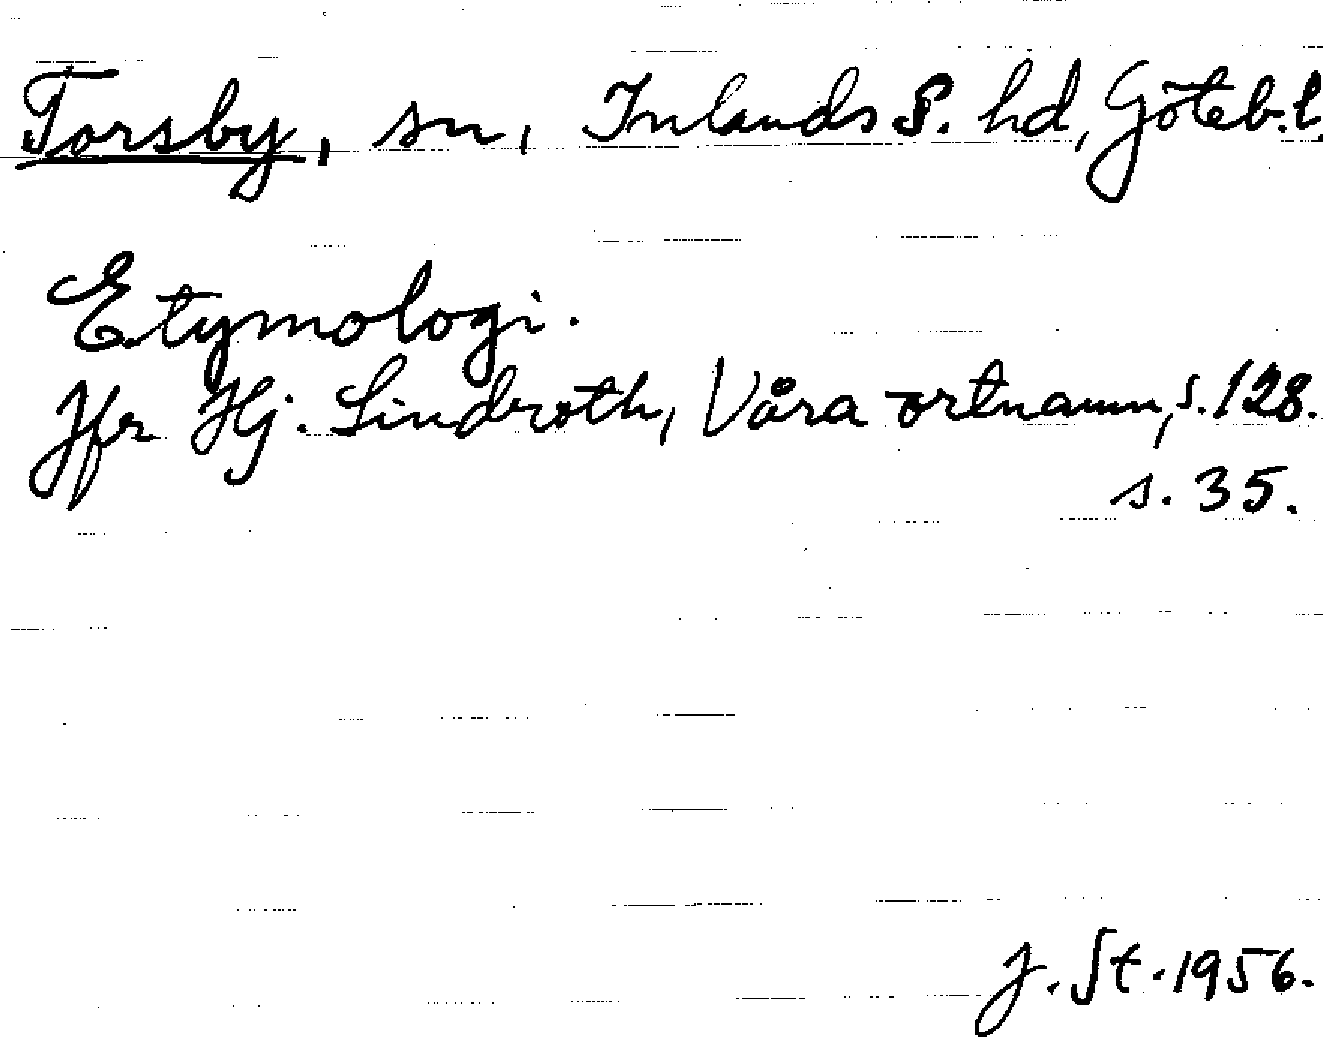 Torsby, sn, Inlands S. hd, Göteb.l.
Etymologi.
Jfr Hj. Lindroth, Våra ortnamn, s. 128.
s. 35.
J. St. 1956.